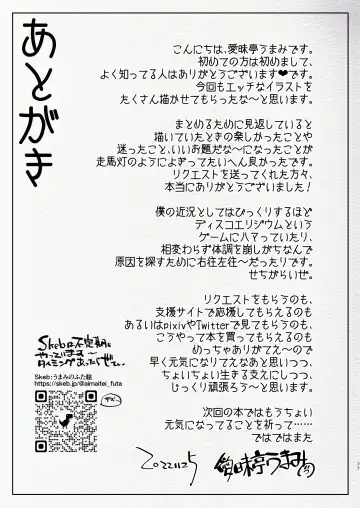 あとがき
こんにちは、愛味亭うまみです。
初めての方は初めまして、
よく知ってる人はありがとうございます❤です。
今回もエッチなイラストを
たくさん描かせてもらったな～と思います。
まとめるために見返していると
描いていたときの楽しかったことや
迷ったこと、いいお題だな～になったことが
走馬灯のようによぎってたいへん良かったです。
リクエストを送ってくれた方々、
本当にありがとうございました！
僕の近況としてはびっくりするほど
ディスコエリジウムという
ゲームにハマっていたり、
相変わらず体調を崩しがちなんで
原因を探すために右往左往～だったりです。
せちがらいぜ。
リクエストをもらうのも、
支援サイトで応援してもらえるのも
あるいはpixivやTwitterで見てもらうのも、
こうやって本を買ってもらえるのも
めっちゃありがてえ～ので
早く元気になりてえなあと思いつつ、
ちょいちょい生きる支えにしつつ、
じっくり頑張ろう～と思います。
次回の本ではもうちょい
元気になってることを祈って……
ではではまた
2022.11.25
愛味亭うまみ
Skebは不定期に
やっています～
タイミングあったらぜひ～
Skeb:うまみのふた絵
https://skeb.jp/@aimaitei_futa